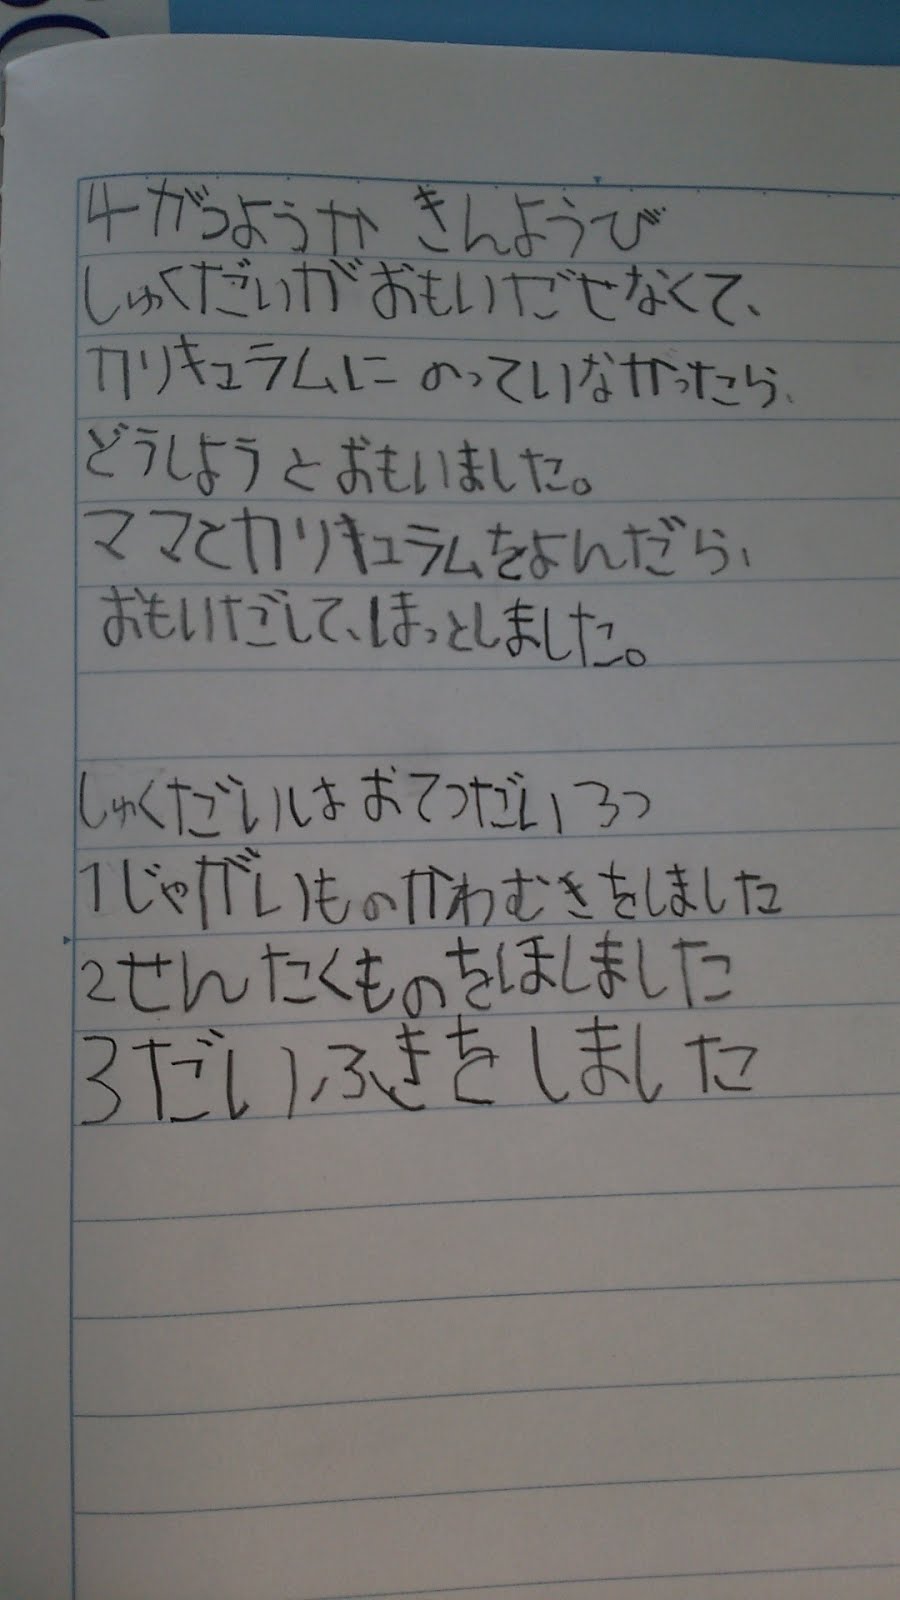 4がつようか きんようび
しゅくだいがおもいだせなくて、
カリキュラムにのっていなかったら、
どうしようとおもいました。
ママとカリキュラムをよんだら、
おもいだして、ほっとしました。
しゅくだいはおてつだい3つ
1じゃがいものかわむきをしました
2せんたくものをほしました
3だいふきをしました